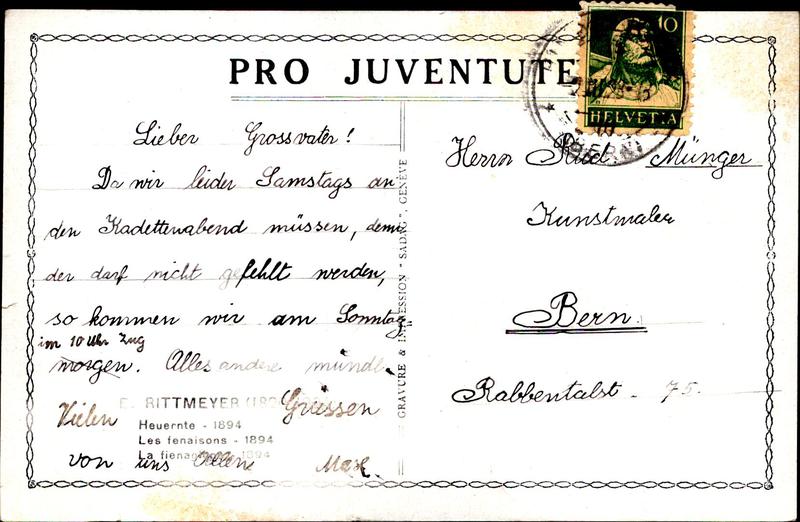 PRO JUVENTUTE
10
HELVETIA
Lieber Grossvater!
Da wir leider Samstags an
den Kadettenabend müssen, denn
der darf nicht gefehlt werden,
so kommen wir am Sonntag
im 10 Uhr Zug
morgen. Alles andere mündl.
Vielen Grüssen
von uns Allen Max.
E. RITTMEYER
Heuernte - 1894
Les fenaisons - 1894
La fienagione 1894
GRAVURE & IMPRESSION "SADAG", GENÈVE
Herrn Rud. Münger
Kunstmaler
Bern.
Rabbentalst. 75.